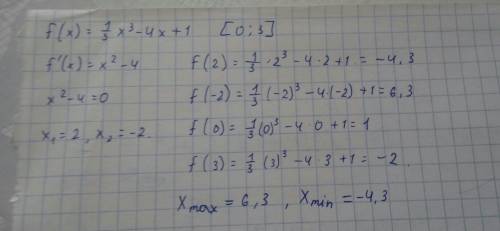 f(x) = 1/3 x³ - 4x + 1 [0; 3]
f'(x) = x² - 4
x² - 4 = 0
x₁ = 2, x₂ = -2.
f(2) = 1/3 · 2³ - 4 · 2 + 1 = -4,3
f(-2) = 1/3 (-2)³ - 4 · (-2) + 1 = 6,3
f(0) = 1/3 (0)³ - 4 · 0 + 1 = 1
f(3) = 1/3 (3)³ - 4 · 3 + 1 = -2.
Xmax = 6,3 , Xmin = -4,3